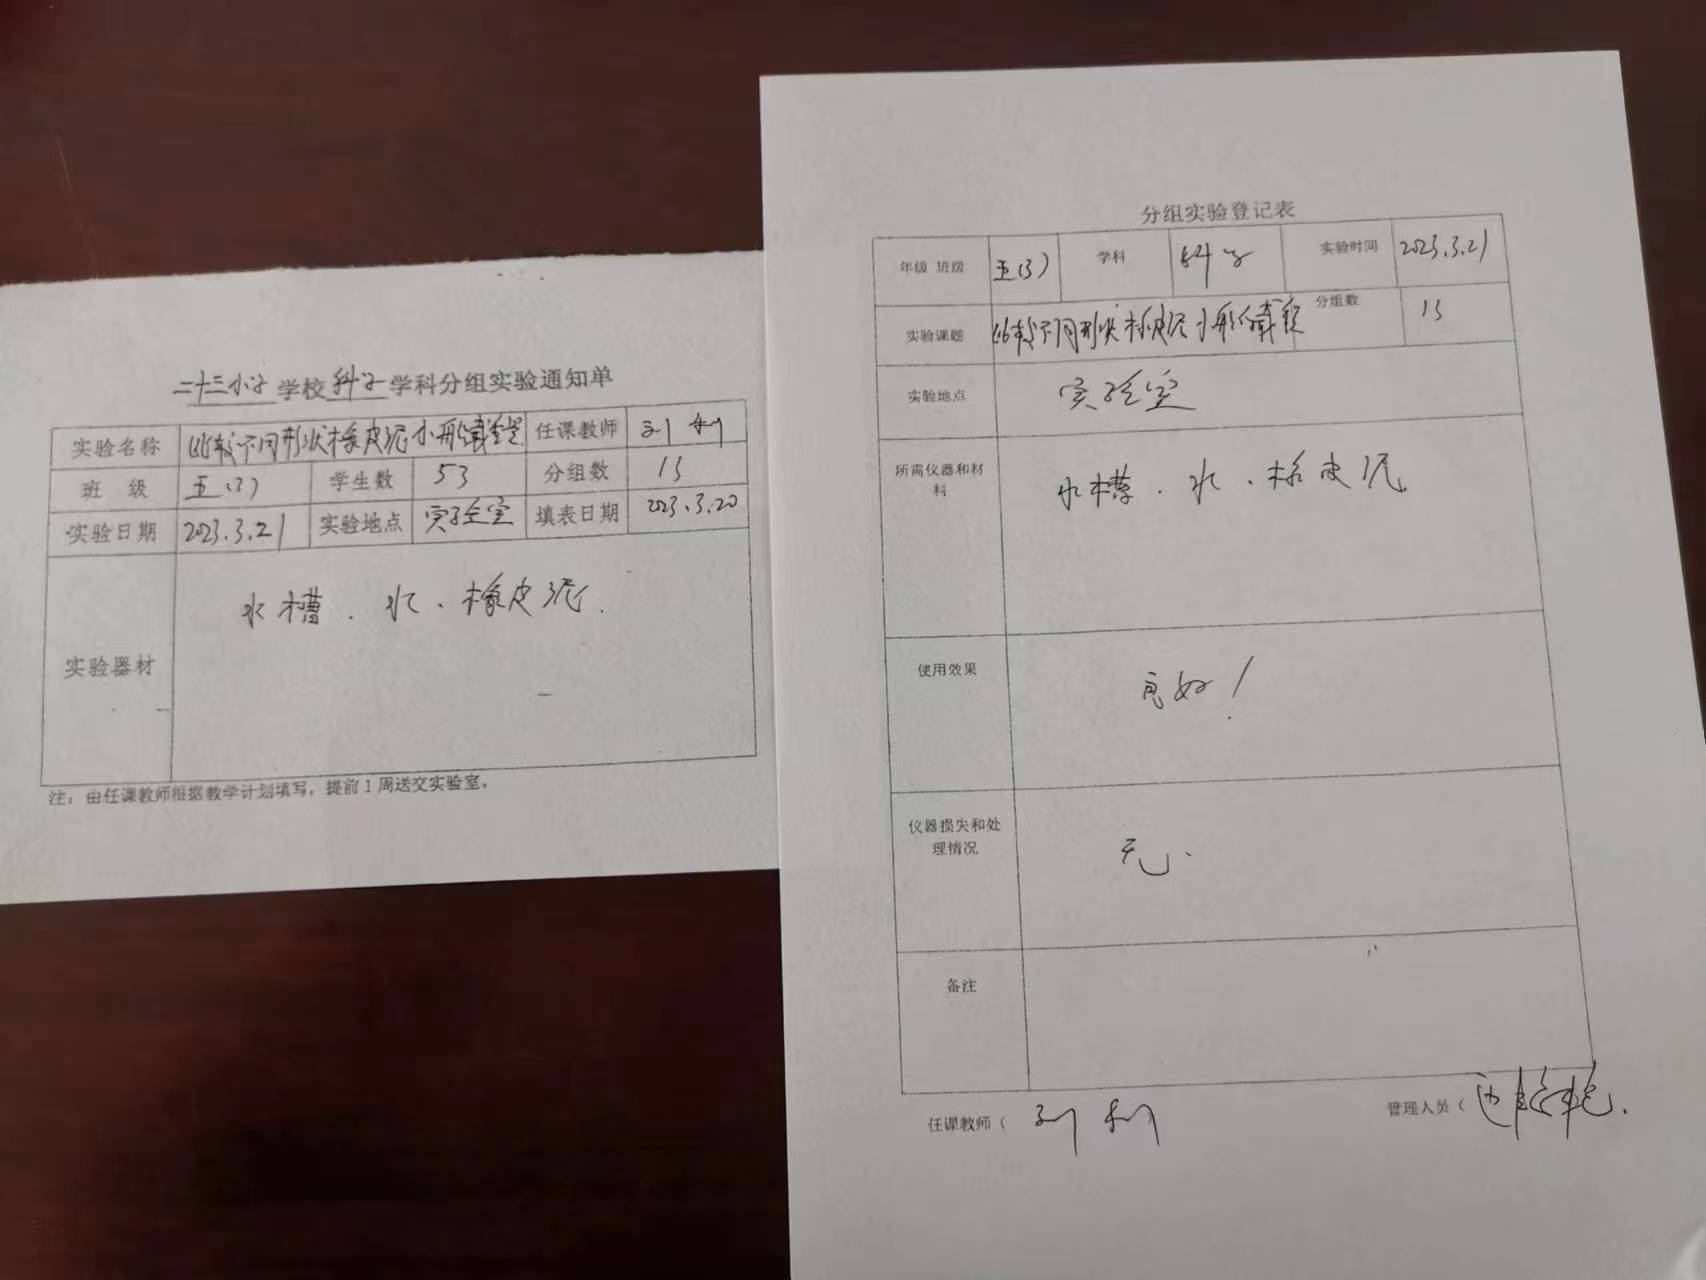 二十三小学学校科学学科分组实验通知单
实验名称 比较不同形状橡皮泥小船的载重量 任课教师 刘利
班 级 五(3) 学生数 53 分组数 13
实验日期 2023.3.21 实验地点 实验室 填表日期 2023.3.20
实验器材 水槽、水、橡皮泥.
注：由任课教师根据教学计划填写，提前1周送交实验室。
分组实验登记表
年级 班级 五(3) 学科 科学 实验时间 2023.3.21
实验课题 比较不同形状橡皮泥小船的载重 分组数 13
实验地点 实验室
所需仪器和材
料
水槽、水、橡皮泥
使用效果 良好！
仪器损失和处
理情况
无.
备注
任课教师（ 刘利 管理人员（